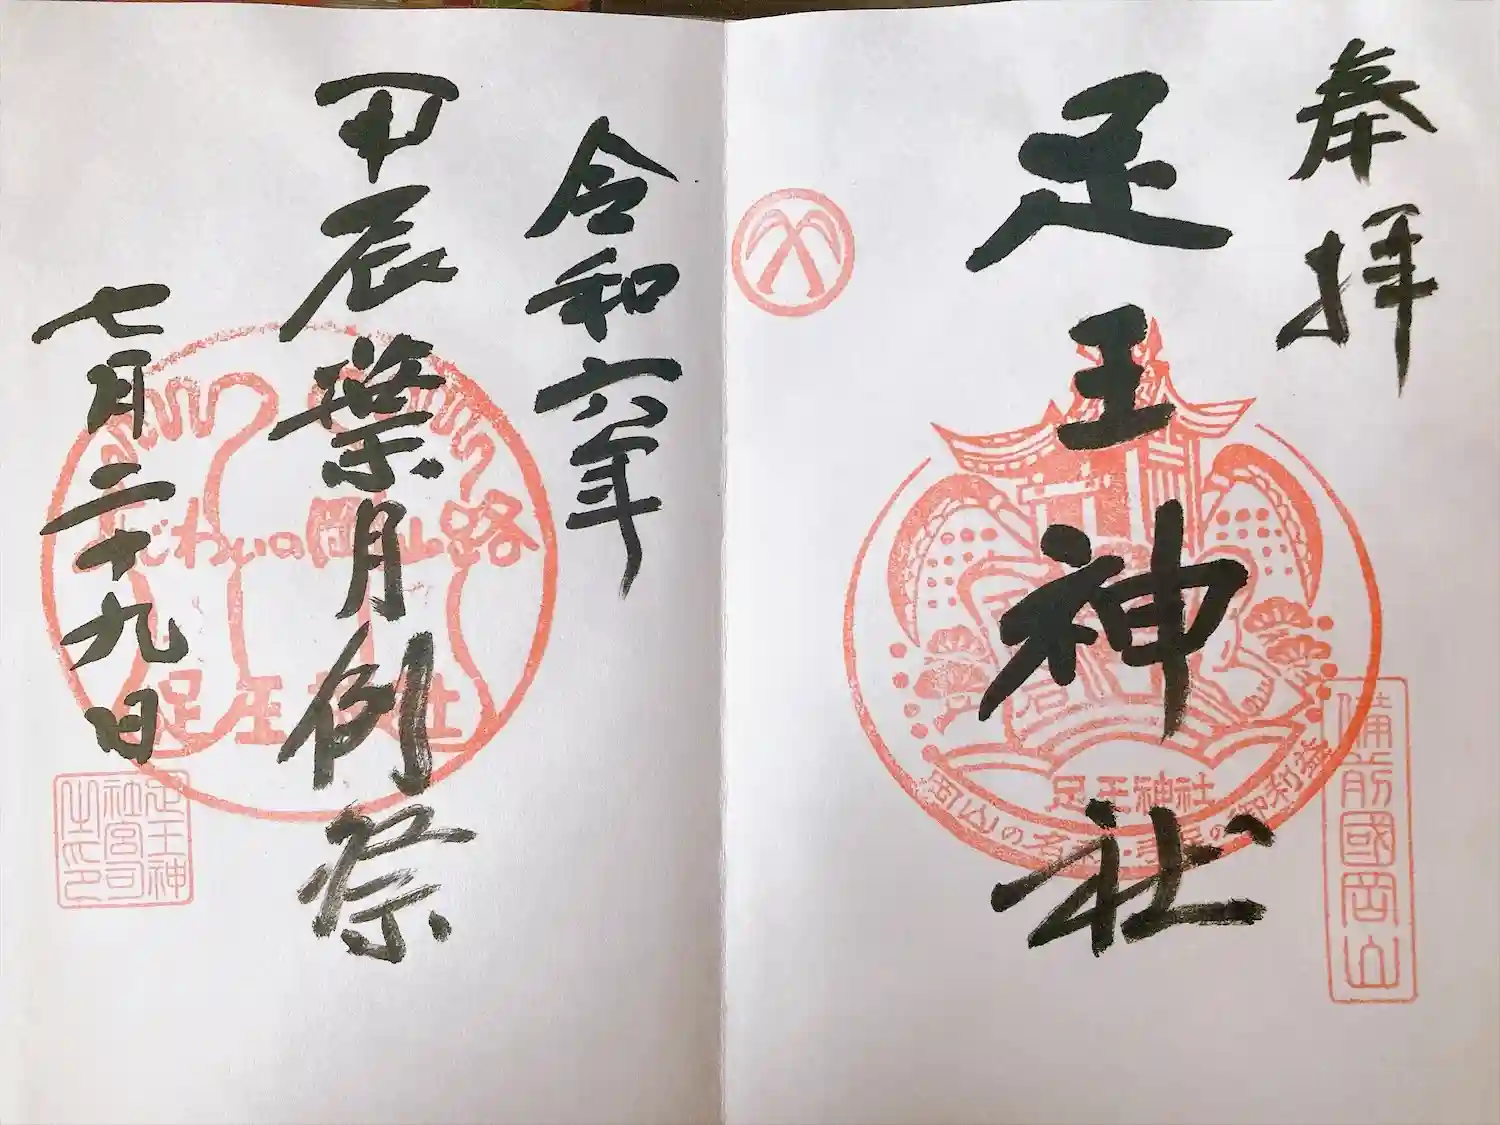 奉拝
足王神社
足王神社
岡山の名
の御利益
備前國岡山
令和六年
甲辰葉月例祭
七月二十九日
わいの岡山路
足王神社
足王神社宮司之印